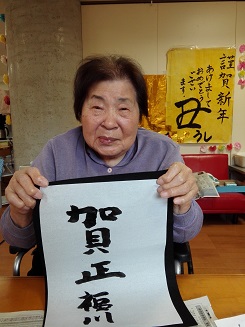 謹賀新年
あけまして
おめでとう
ござい
ます!
丑
うし
賀正福